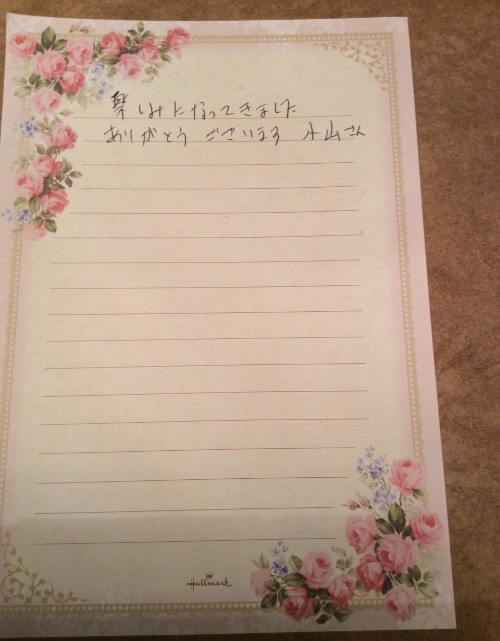 楽しみになってきました
ありがとう ございます 小山さん
Hallmark